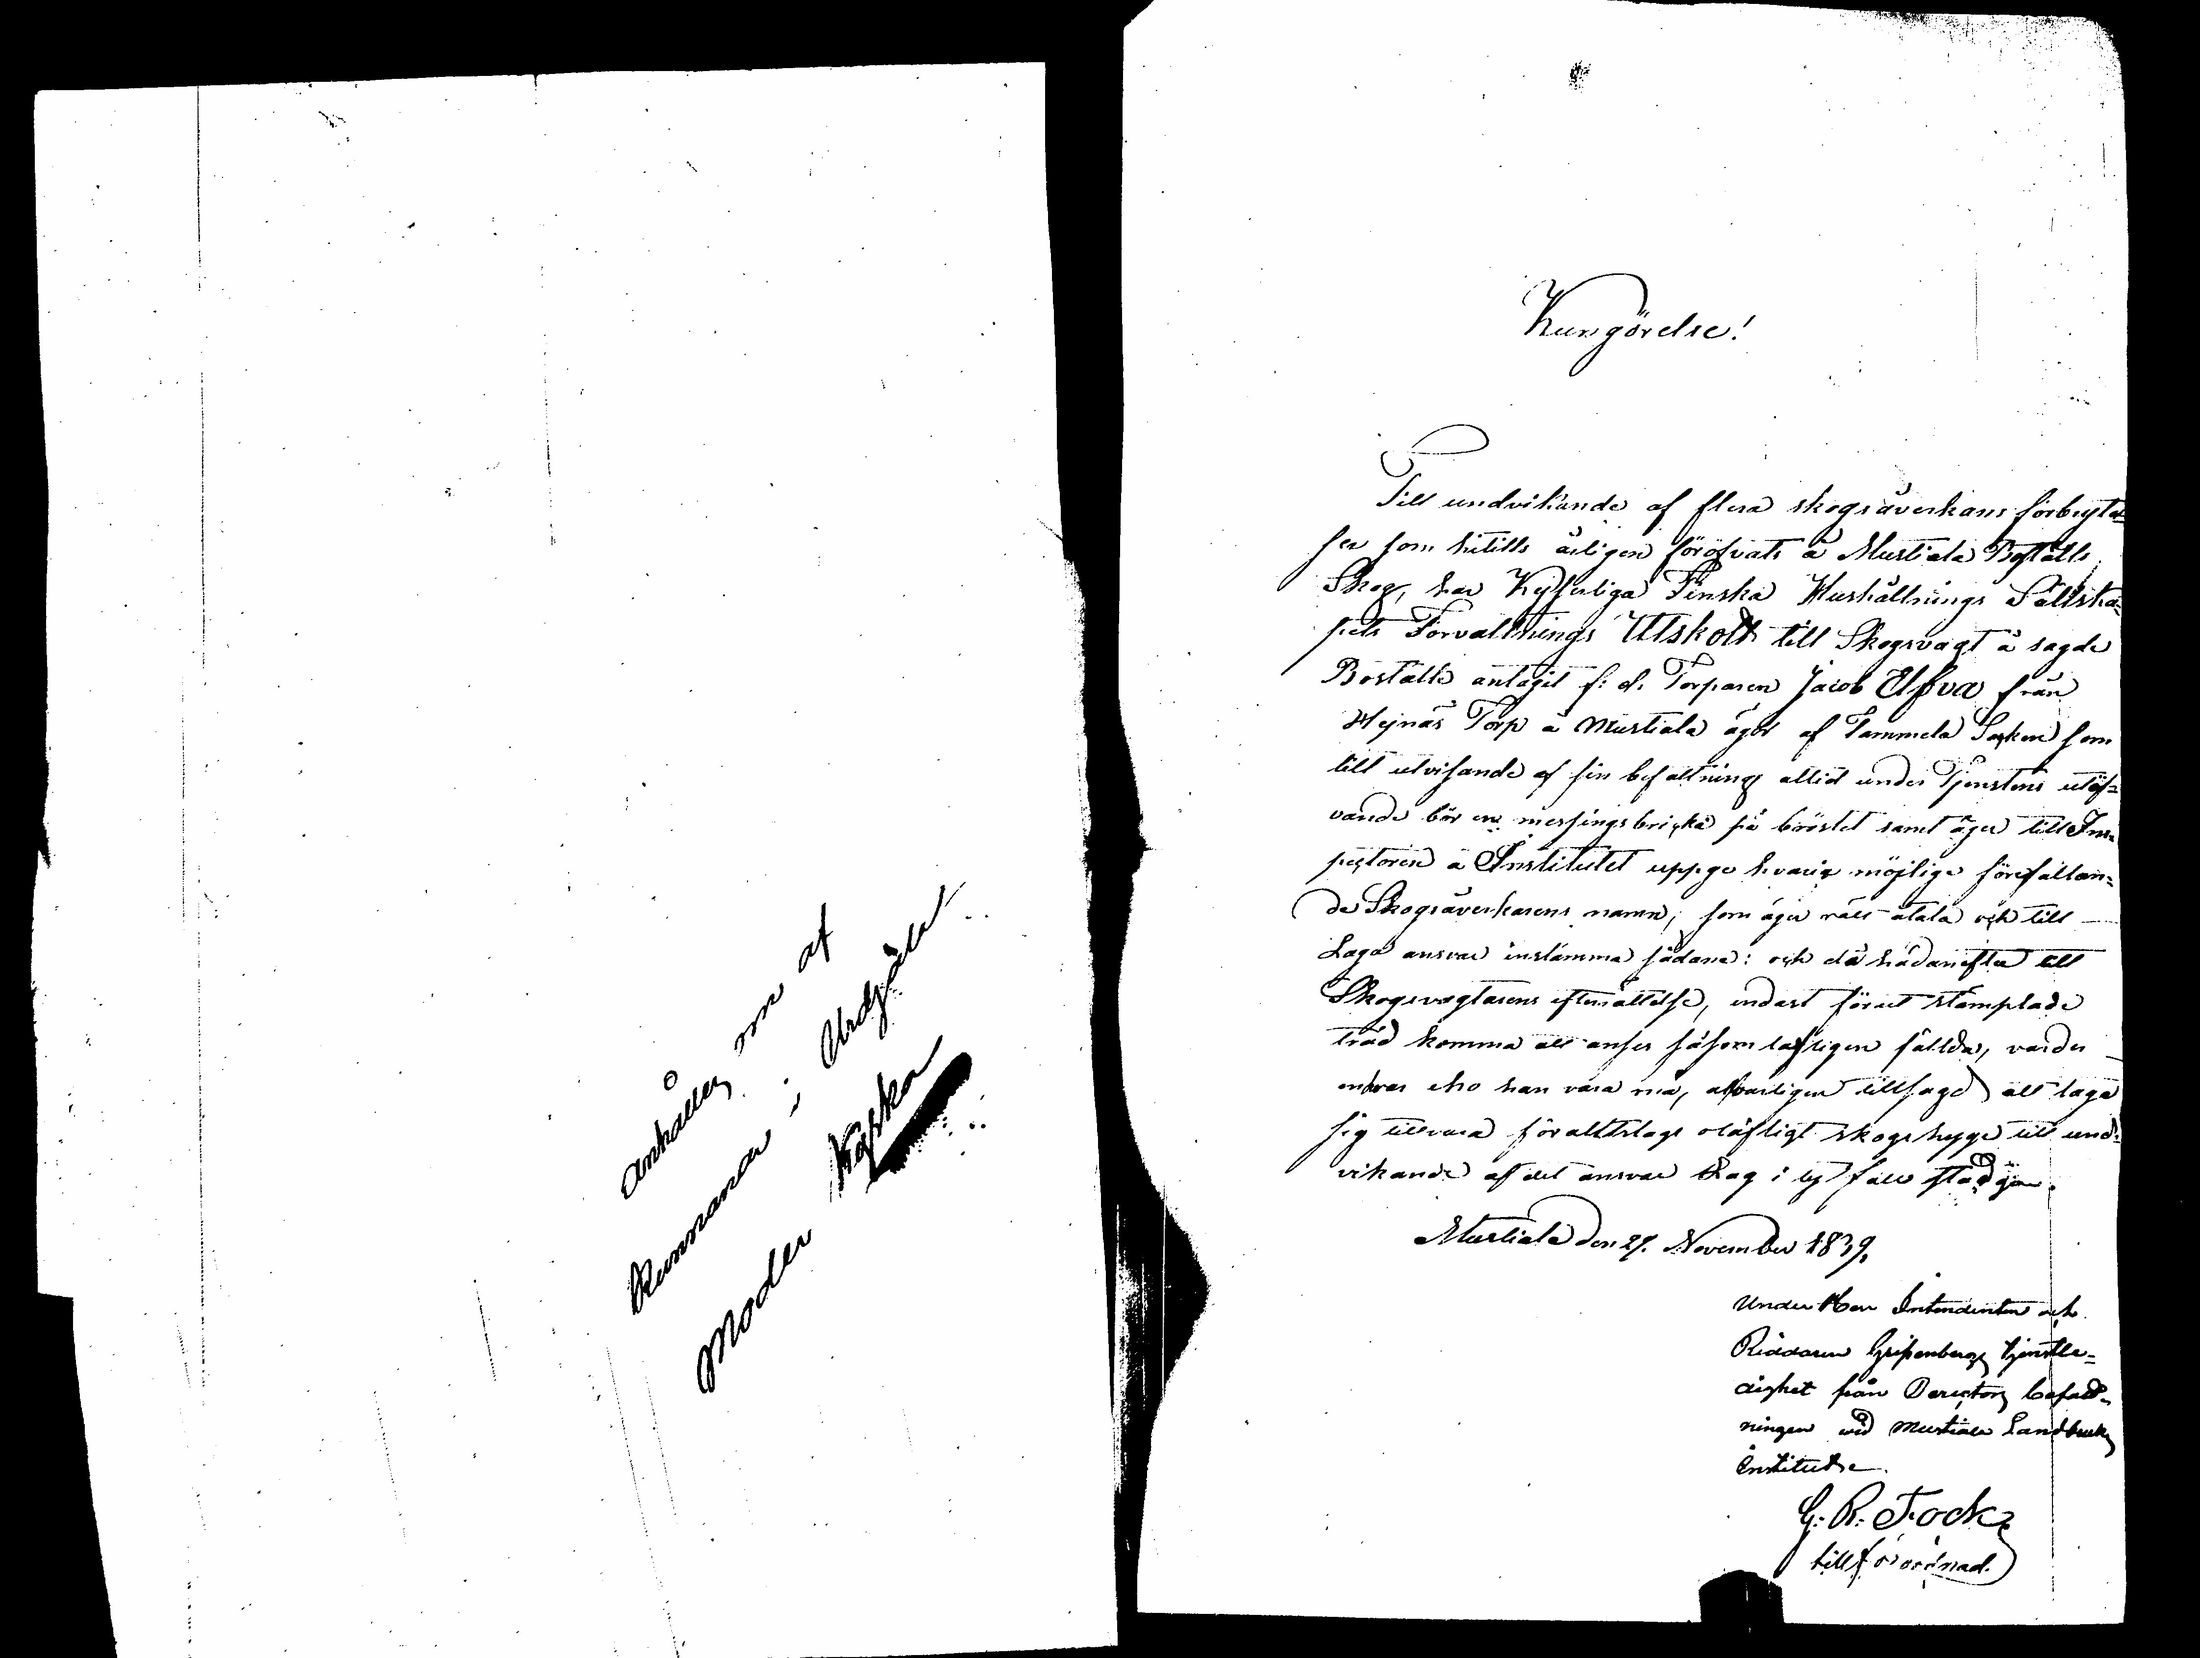 anhålles om af
Kunnande i Urdjala
Moder Kyrka
Kungörelse!
Till undvikande af flera skogsåverkans förbryta-
ser som hitills årligen föröfvats å Mustiala Boställs
Skog, har Kejserliga Finska Hushållnings Sällska-
pets Förvaltnings Utskott till Skogsvagt å sagde
Boställe antagit f: d: Torparen Jacob Elfva från
Hejnäs Torp å Mustiala ägor af Tammela Socken som
till utvisande af sin befattning alltid under Tjenstens utöf-
vande bär en messingsbricka på bröstet samt äger till Ins-
pectoren å Institutet uppge hvarje möjlige förefallan-
de Skogsåverkarens namn, som äger rätt åtala och till
Laga ansvar instämma sådana: och då hädanefter till
Skogsvagtarens efterrättelse, endast förut stämplade
träd komma att anses såsom lofligen fällda, varder
enhvar eho han vara må, alfvarligen tillsagd att taga
sig tillvara för alltslags olofligt skogshygge till und-
vikande af det ansvar Lag i ty fall stadgar.
Mustiala den 29. November 1839.
Under Herr Intendenten och
Riddaren Gripenbergs tjenstle-
dighet från Directors befatt-
ningen vid Mustiala Landbruks
Institut
G. R. Fock
tillförordnad.